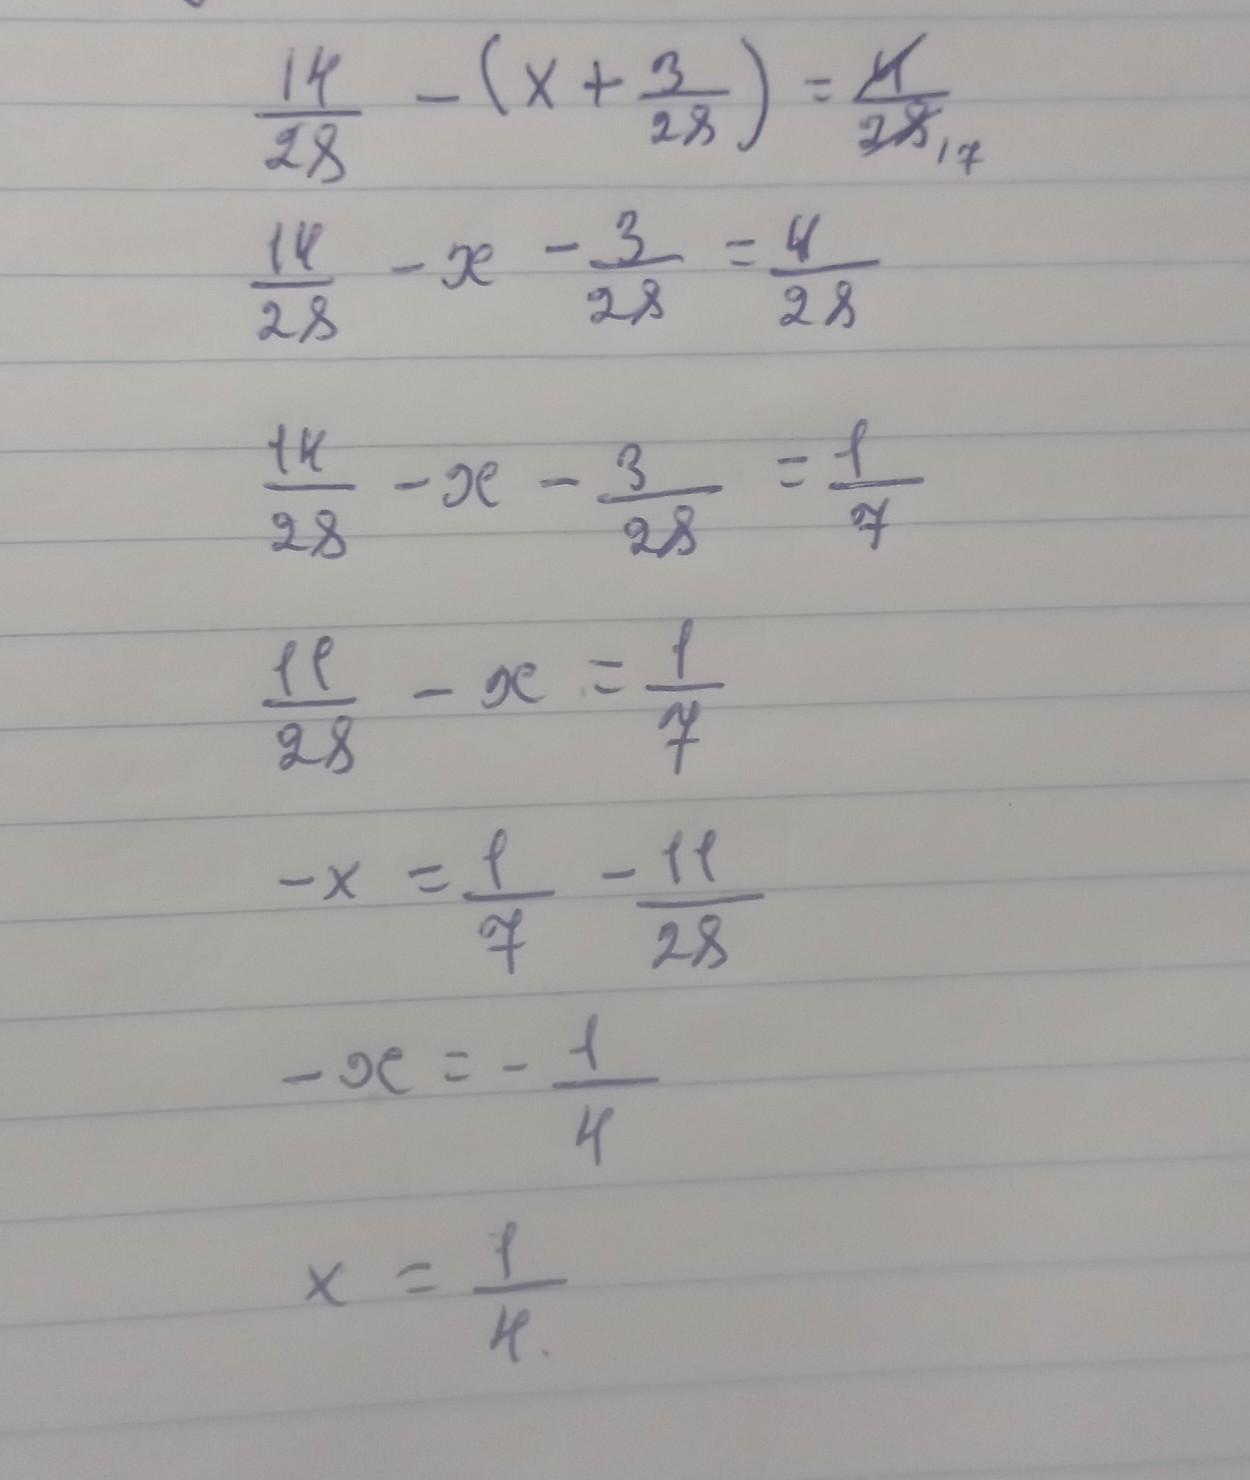 14/28 - (x + 3/28) = 4/28 17
14/28 - x - 3/28 = 4/28
14/28 - x - 3/28 = 1/7
11/28 - x = 1/7
-x = 1/7 - 11/28
-x = - 1/4
x = 1/4.